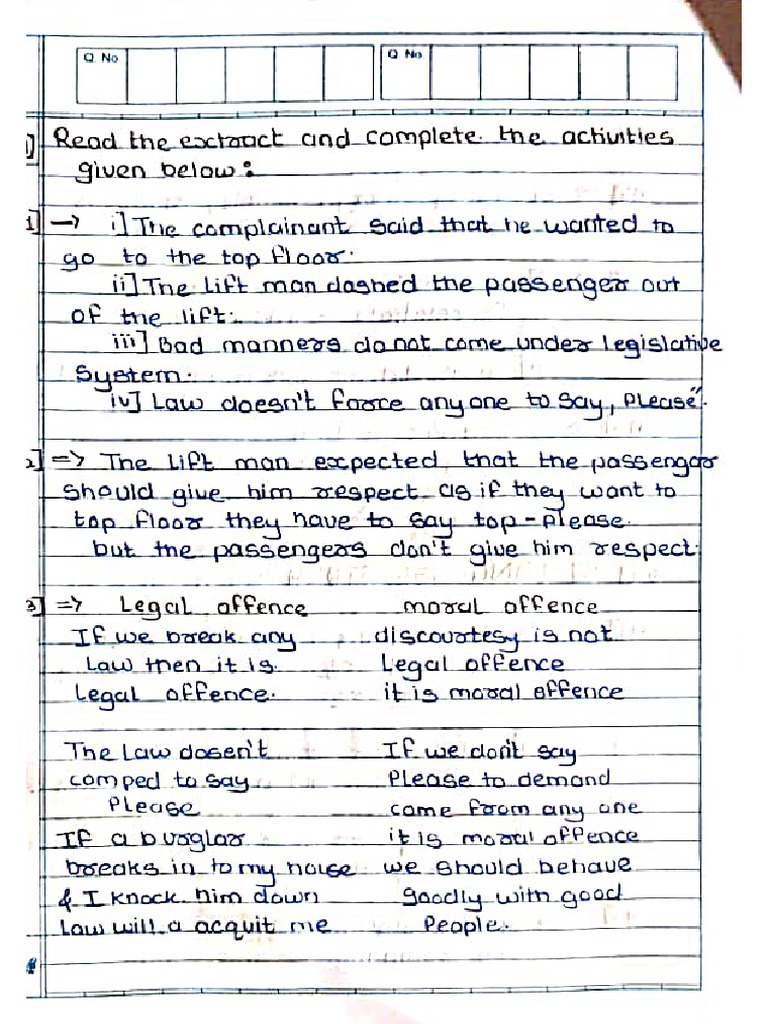 Q No Q No
1] Read the exctract and complete. the activities
given below:
1] → i] The complainant said that he wanted to
go to the top floor.
ii] The lift man dashed the passenger out
of the lift.
iii] Bad manners do not come under legislative
System.
iv] Law doesn't force anyone to say, please".
2] => The lift man expected that the passengar
should give him respect as if they want to
top floor they have to say top-please.
but the passengers don't give him respect.
3] => Legal offence moral offence
If we break any discourtesy is not
Law then it is. Legal offence
Legal offence. it is moral offence
The Law dosen't If we don't say
comped to say Please to demand
Please came from any one
If a burglar it is moral offence
breaks in to my house we should behave
& I knock him down goodly with good
Law will a acquit me People.